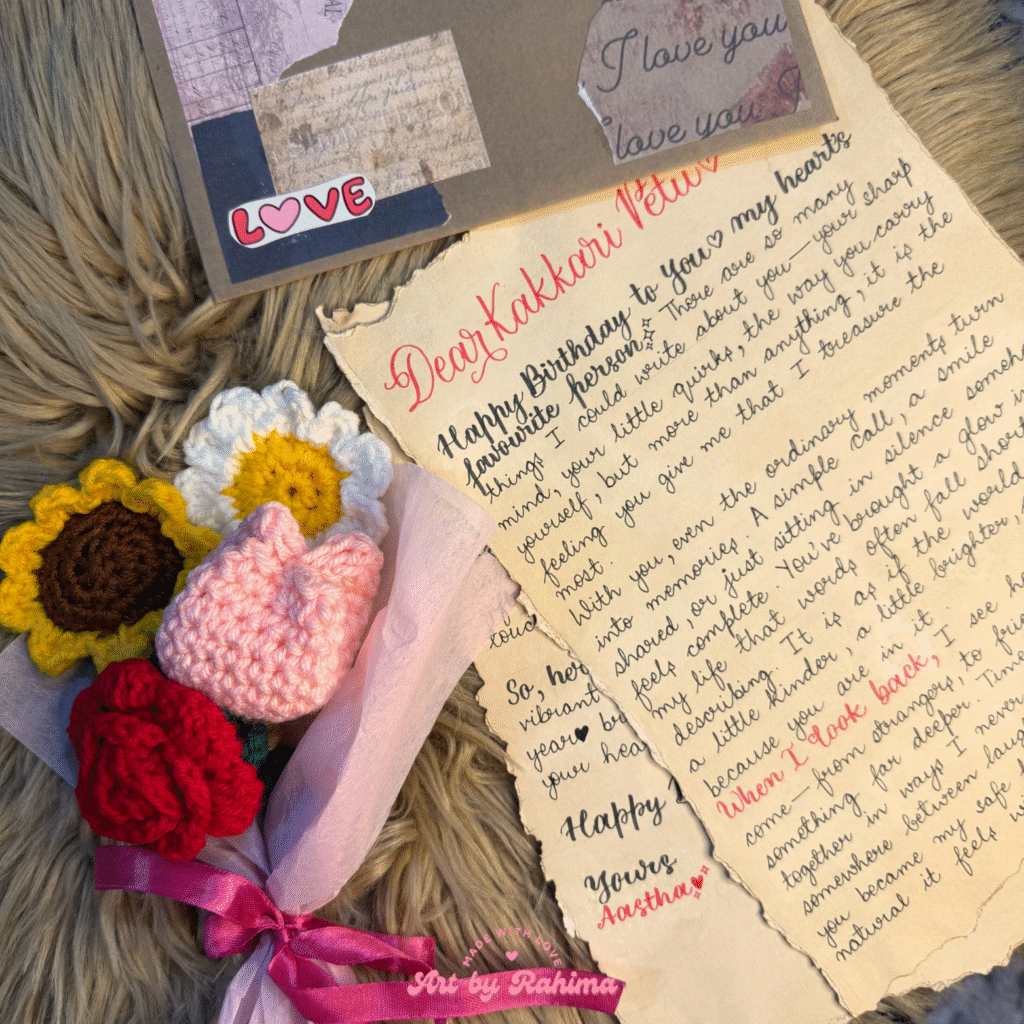 I love you
love you I
LOVE
Dear Kakkari Petu♡
Happy Birthday to you♡ my heart's
favourite person There are so many
things I could write about you—your sharp
mind, your little quirks, the way you carry
yourself, but more than anything, it is the
feeling you give me that I treasure the
most.
With you, even the ordinary moments turn
into memories. A simple call, a smile
shared, or just sitting in silence
feels complete. You've brought a glow
my life that words often fall short
describing. It is as if the world
little kinder, a little brighter,
because you are in it.
When I look back, I see
come—from strangers, to
something far deeper.
together in ways I never
somewhere between
you became my safe
natural it feels
So, her
vibrant
year♥
your
Happy
Yours
Aastha♥
MADE WITH LOVE
Art by Rahima